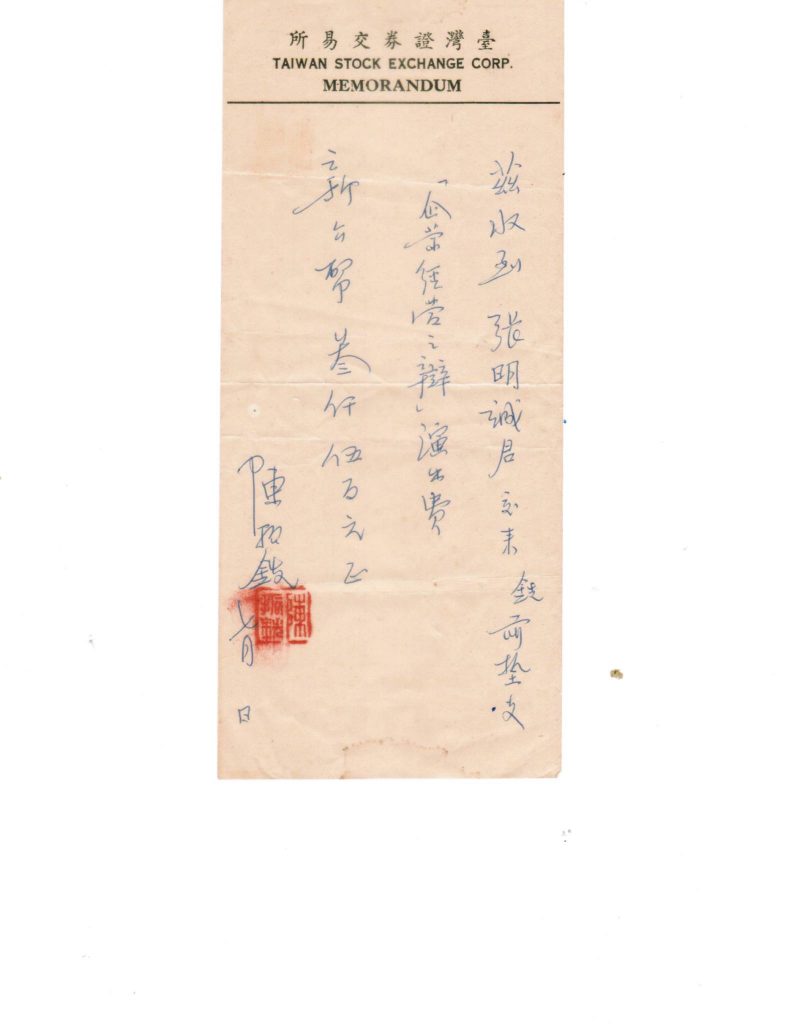 臺灣證券交易所
TAIWAN STOCK EXCHANGE CORP.
MEMORANDUM
茲收到 張明誠君交來 前墊支
「企業經營之辯」演出費
新台幣 叁仟伍百元正
陳 七月 日